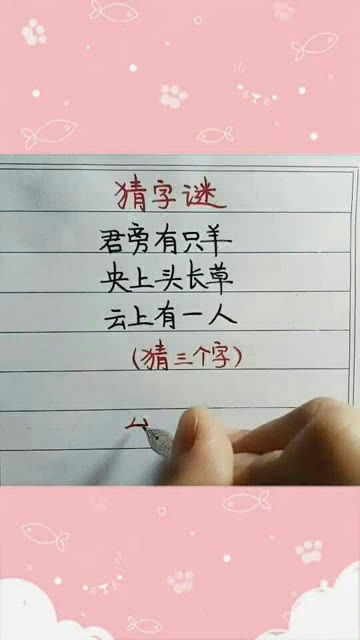 猜字谜
君旁有只羊
央上头长草
云上有一人
(猜三个字)